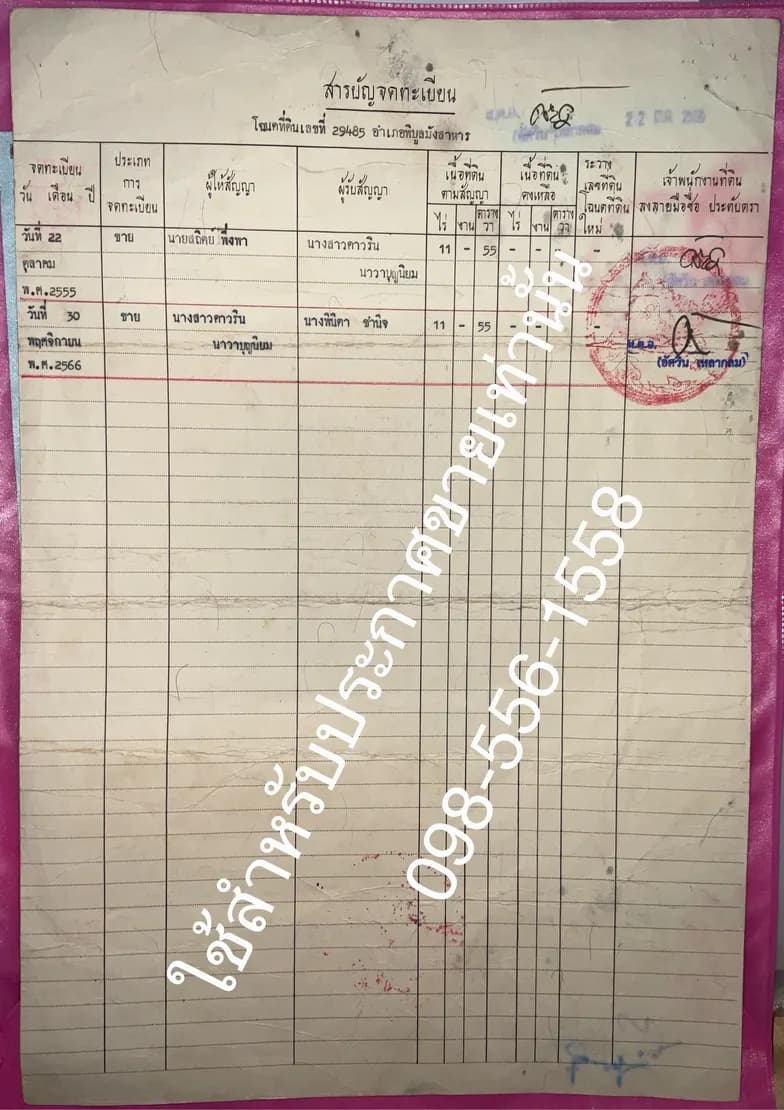 สารบัญจดทะเบียน
โฉนดที่ดินเลขที่ 29485 อำเภอพิบูลมังสาหาร
จดทะเบียน
วัน เดือน ปี
ประเภท
การ
จดทะเบียน
ผู้ให้สัญญา
ผู้รับสัญญา
เนื้อที่ดิน
ตามสัญญา
ไร่ งาน ตาราง
วา
เนื้อที่ดิน
คงเหลือ
ไร่ งาน ตาราง
วา
ระวาง
เลขที่ดิน
โฉนดที่ดิน
ใหม่
เจ้าพนักงานที่ดิน
ลงลายมือชื่อ ประทับตรา
วันที่ 22 ขาย นายสถิตย์ พึ่งทา นางสาวดาวริน 11 - 55 - - - -
ตุลาคม นาวาบุญนิยม
พ.ศ.2555
วันที่ 30 ขาย นางสาวดาวริน นางพินิดา ชำนิจ 11 - 55 - - - -
พฤศจิกายน นาวาบุญนิยม น.ต.จ.
พ.ศ.2566 (อัควิน เหลากลม)
ใช้สำหรับประกาศขายเท่านั้น
098-556-1558